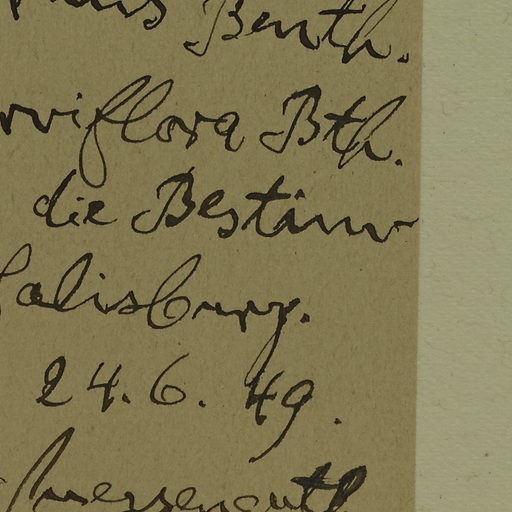 Benth.
rviflora Bth.
die Bestim
Salisburg.
24.6.49.